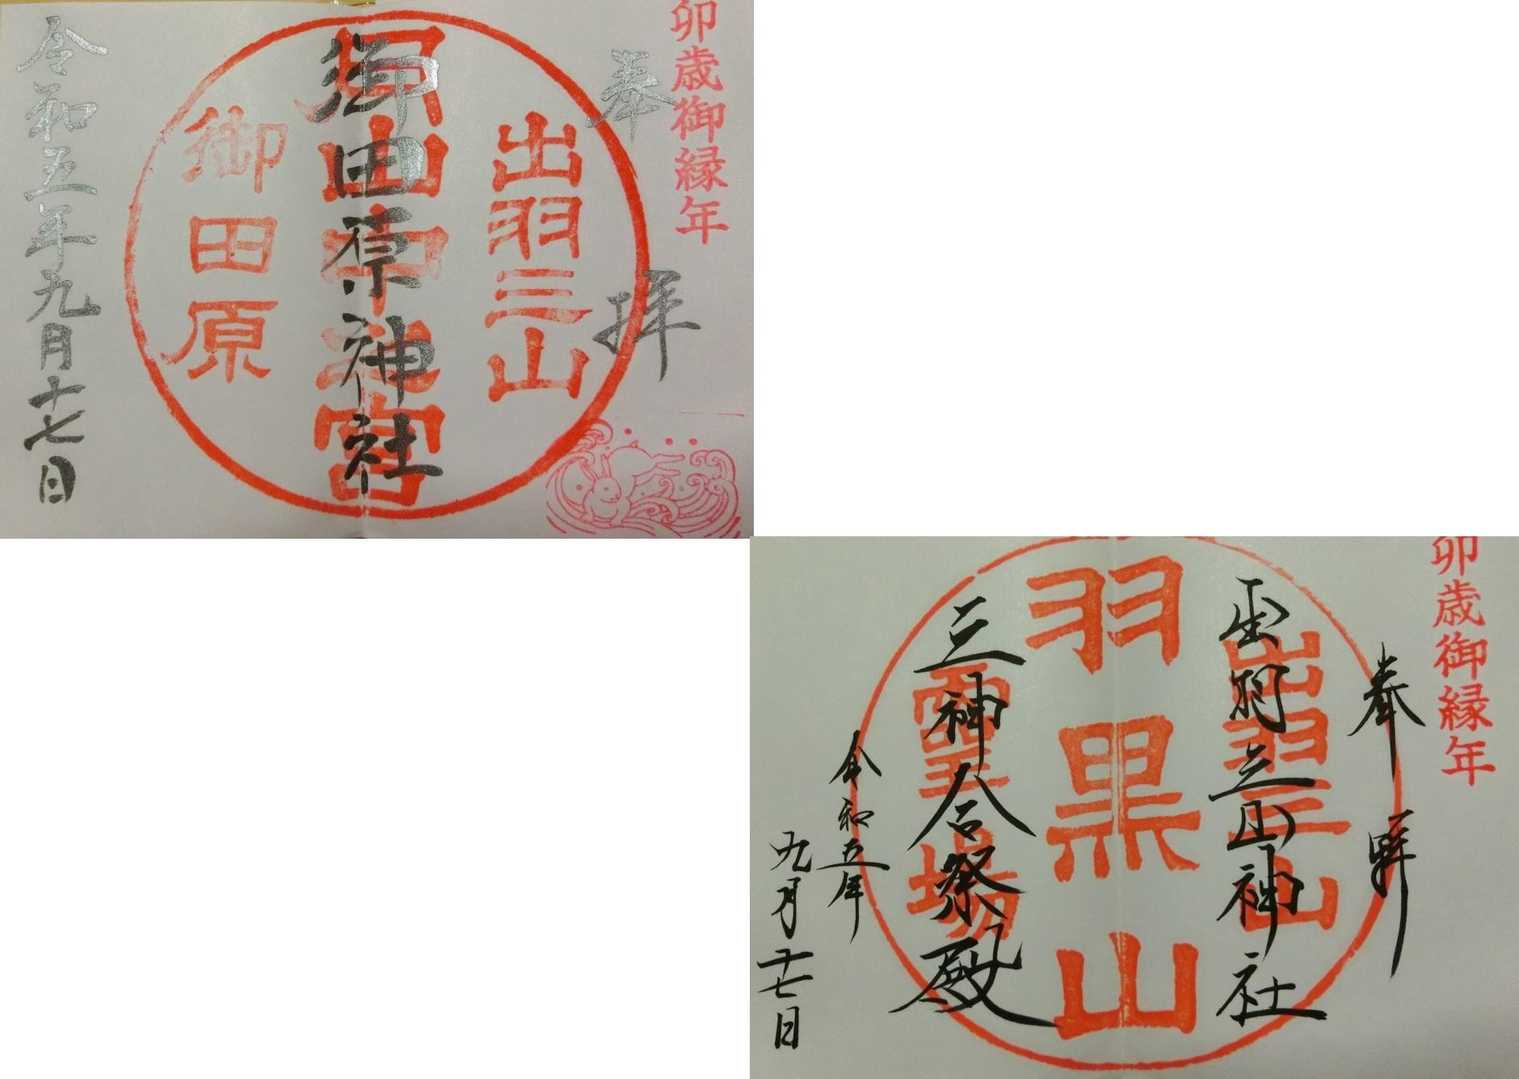 卯歳御縁年
奉拝
出羽三山
御田原神社
御田原
令和五年九月十七日
卯歳御縁年
奉拝
出羽三山
出羽三山神社
羽黒山
霊場
三神合祭殿
令和五年
九月十七日